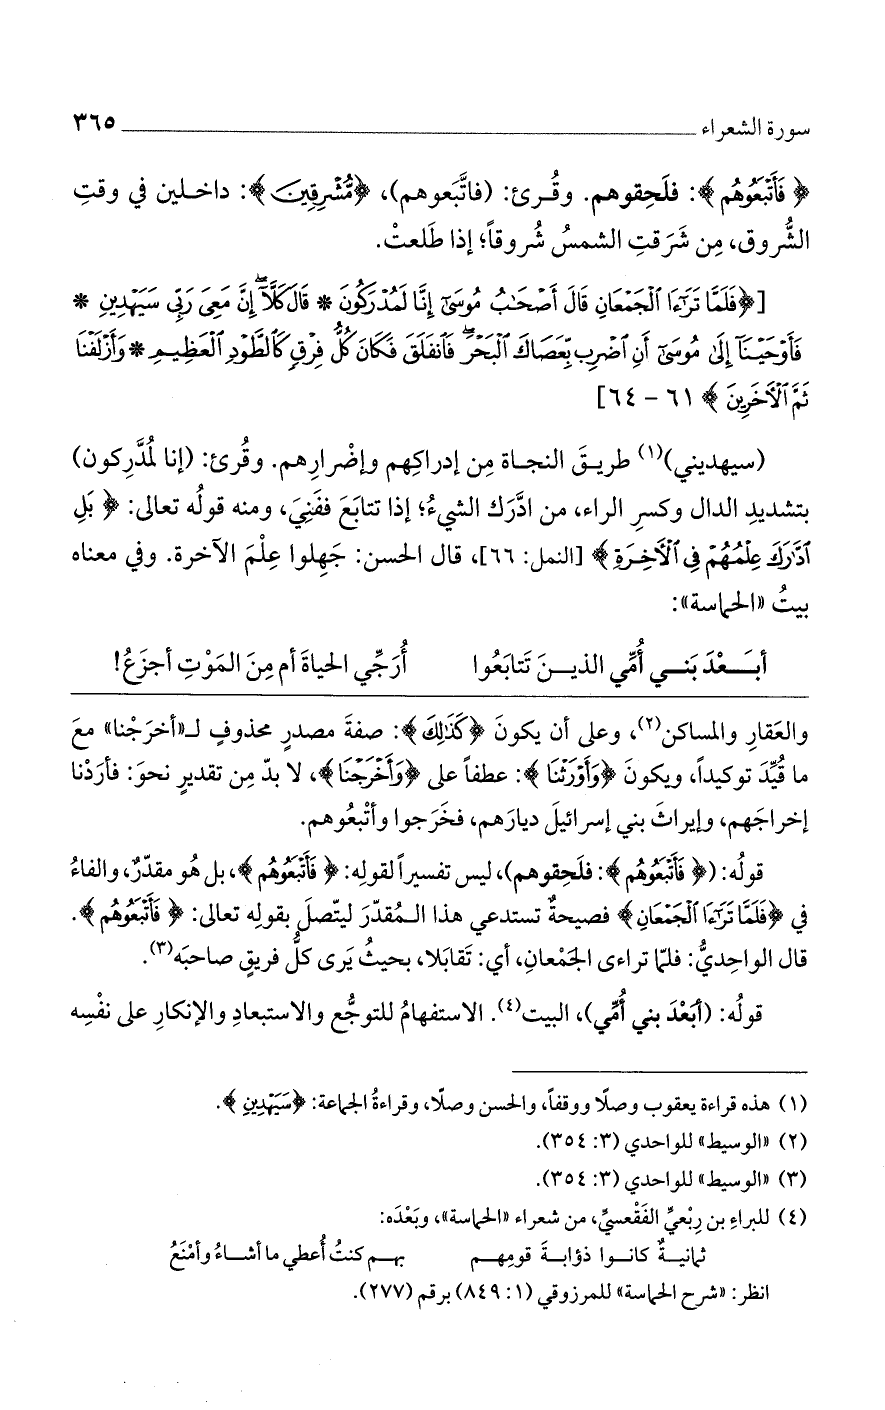 سورة الشعراء ٣٦٥
﴿فَأَتْبَعُوهُم﴾: فلَحِقوهم. وقُرئ: (فاتَّبَعوهم)، ﴿مُّشْرِقِينَ﴾: داخلين في وقتِ
الشُّروق، مِن شَرَقتِ الشمسُ شُروقاً؛ إذا طَلعتْ.
[﴿فَلَمَّا تَرَٰٓءَا ٱلْجَمْعَانِ قَالَ أَصْحَٰبُ مُوسَىٰٓ إِنَّا لَمُدْرَكُونَ * قَالَ كَلَّآ ۖ إِنَّ مَعِىَ رَبِّى سَيَهْدِينِ *
فَأَوْحَيْنَآ إِلَىٰ مُوسَىٰٓ أَنِ ٱضْرِب بِّعَصَاكَ ٱلْبَحْرَ ۖ فَٱنفَلَقَ فَكَانَ كُلُّ فِرْقٍ كَٱلطَّوْدِ ٱلْعَظِيمِ * وَأَزْلَفْنَا
ثَمَّ ٱلْأَخَرِينَ﴾ ٦١ - ٦٤]
(سيهديني)(١) طريقَ النجاة مِن إدراكِهم وإضْرارِهم. وقُرئ: (إنا لمُدَّرِكون)
بتشديدِ الدال وكسرِ الراء، من ادَّرَك الشيءُ؛ إذا تتابَعَ ففَنِيَ، ومنه قولُه تعالى: ﴿بَلِ
ٱدَّٰرَكَ عِلْمُهُمْ فِى ٱلْأَخِرَةِ﴾ [النمل: ٦٦]، قال الحسن: جَهِلوا عِلْمَ الآخرة. وفي معناه
بيتُ «الحماسة»:
أبَعْدَ بَني أُمِّي الذينَ تَتابَعُوا أُرَجِّي الحياةَ أم مِنَ المَوْتِ أجزَعُ!
والعَقارِ والمساكن(٢)، وعلى أن يكونَ ﴿كَذَٰلِكَ﴾: صفةَ مصدرٍ محذوفٍ لـ«أخرَجْنا» معَ
ما قُيِّدَ توكيداً، ويكونَ ﴿وَأَوْرَثْنَا﴾: عطفاً على ﴿وَأَخْرَجْنَا﴾، لا بدّ مِن تقديرٍ نحوَ: فأرَدْنا
إخراجَهم، وإيراثَ بني إسرائيلَ ديارَهم، فخَرَجوا وأتْبعُوهم.
قولُه: (﴿فَأَتْبَعُوهُم﴾: فلَحِقوهم)، ليس تفسيراً لقولِه: ﴿فَأَتْبَعُوهُم﴾، بل هُو مقدّرٌ، والفاءُ
في ﴿فَلَمَّا تَرَٰٓءَا ٱلْجَمْعَانِ﴾ فصيحةٌ تستدعي هذا المُقدّرَ ليتّصلَ بقولِه تعالى: ﴿فَأَتْبَعُوهُم﴾.
قال الواحِديُّ: فلمّا تراءى الجَمْعانِ، أي: تَقابَلا، بحيثُ يَرى كلُّ فريقٍ صاحبَه(٣).
قولُه: (أبَعْدَ بني أُمِّي)، البيت(٤). الاستفهامُ للتوجُّع والاستبعادِ والإنكارِ على نفْسِه
(١) هذه قراءة يعقوب وصلًا ووقفاً، والحسن وصلًا، وقراءةُ الجماعة: ﴿سَيَهْدِينِ﴾.
(٢) «الوسيط» للواحدي (٣: ٣٥٤).
(٣) «الوسيط» للواحدي (٣: ٣٥٤).
(٤) للبراءِ بن رِبْعيٍّ الفَقْعسيِّ، من شعراء «الحماسة»، وبَعْدَه:
ثمانيةٌ كانوا ذؤابةَ قومِهم بهم كنتُ أُعطي ما أشاءُ وأمْنَعُ
انظر: «شرح الحماسة» للمرزوقي (١: ٨٤٩) برقم (٢٧٧).